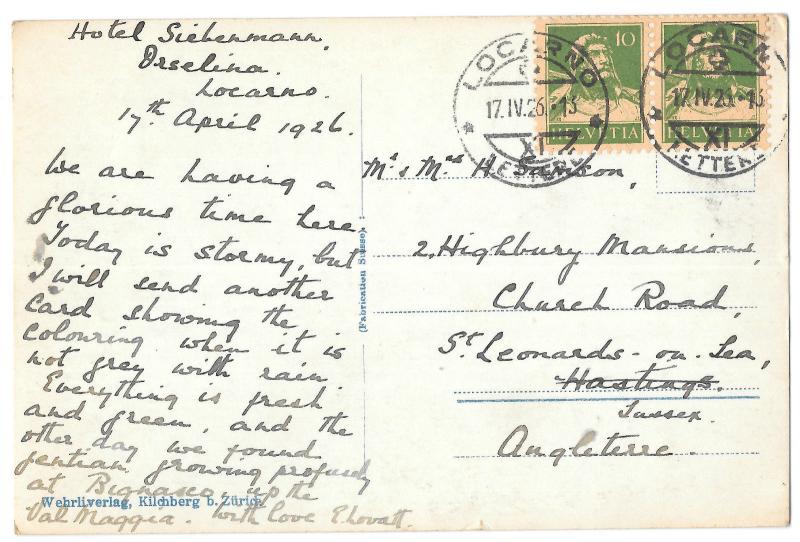 Hotel Siebenmann,
Orselina.
Locarno.
17th April 1926.
We are having a
glorious time here.
Today is stormy, but
I will send another
card showing the
colouring when it is
not grey with rain.
Everything is fresh
and green, and the
other day we found
gentian growing profusely
at Bignasco, up the
Val Maggia. With love E. Lovatt.
Wehrliverlag, Kilchberg b. Zürich
(Fabrication Suisse)
10
HELVETIA
HELVETIA
LOCARNO
17.IV.26.-13
XI
LETTERE
LOCARNO
17.IV.26.-13
XI
LETTERE
Mr & Mrs H.
2, Highbury Mansions,
Church Road,
St Leonards-on-Sea,
Hastings.
Sussex.
Angleterre.